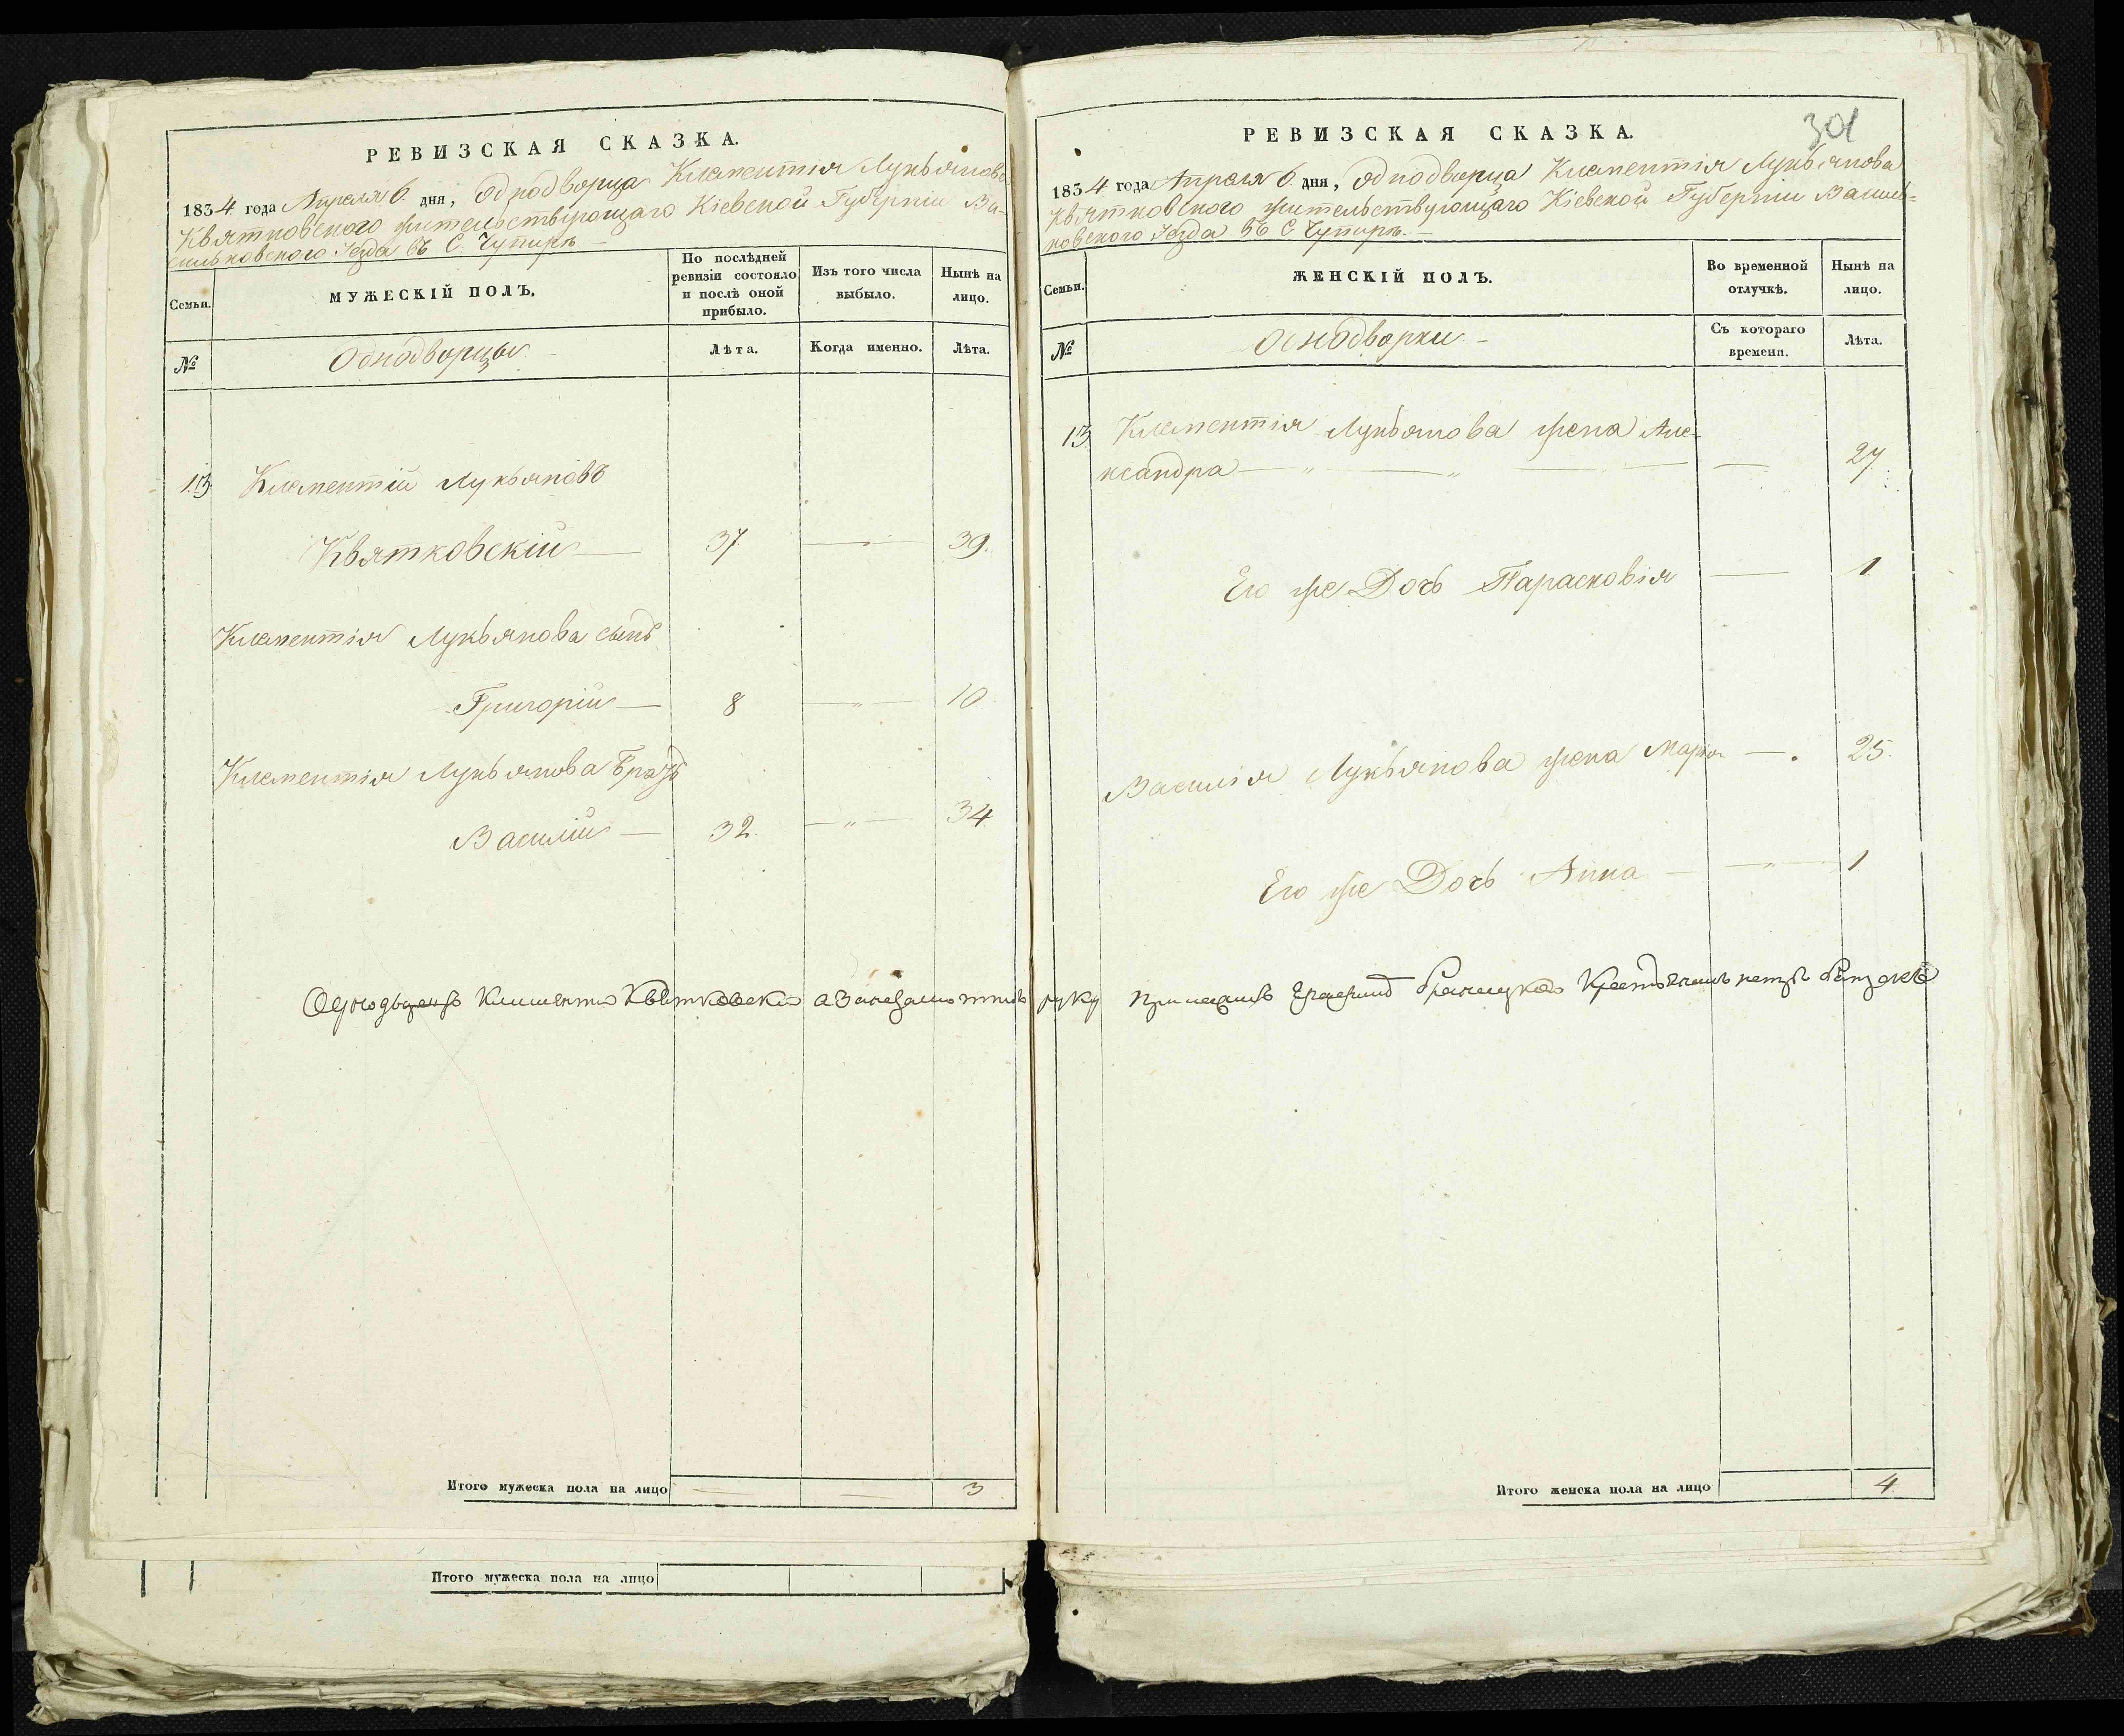 РЕВИЗСКАЯ СКАЗКА.
1834 года Апреля 6. дня, Однодворца Клементія Лукьянова
Квятковского жительствующаго Кіевской Губерніи Ва-
сильковского Уезда въ С. Чупирѣ
Семьи.
МУЖЕСКІЙ ПОЛЪ.
По послѣдней ревизіи состояло и послѣ оной прибыло.
Изъ того числа выбыло.
Нынѣ на лицо.
№
Однодворцы
Лѣта.
Когда именно.
Лѣта.
13 Клементій Лукьяновъ
Квятковскій — 37. — 39.
Клементія Лукьянова сынъ
Григорій — 8 — 10
Клементія Лукьянова Братъ
Василій — 32. — 34.
Однодворецъ Клементій Квятковскій а
Итого мужеска пола на лицо — — 3
Итого мужеска пола на лицо
301
РЕВИЗСКАЯ СКАЗКА.
1834 года Апреля 6. дня, Однодворца Клементія Лукьянова
Квятковского жительствующаго Кіевской Губерніи Василь-
ковского Уезда въ С Чупирѣ.
Семьи.
ЖЕНСКІЙ ПОЛЪ.
Во временной отлучкѣ.
Нынѣ на лицо.
№
Однодворки
Съ котораго времени.
Лѣта.
13 Клементія Лукьянова жена Але-
ксандра — — 27
Его же Дочь Парасковія — 1
Василія Лукьянова жена Марья — 25.
Его же Дочь Анна — 1
руку
Итого женска пола на лицо 4.